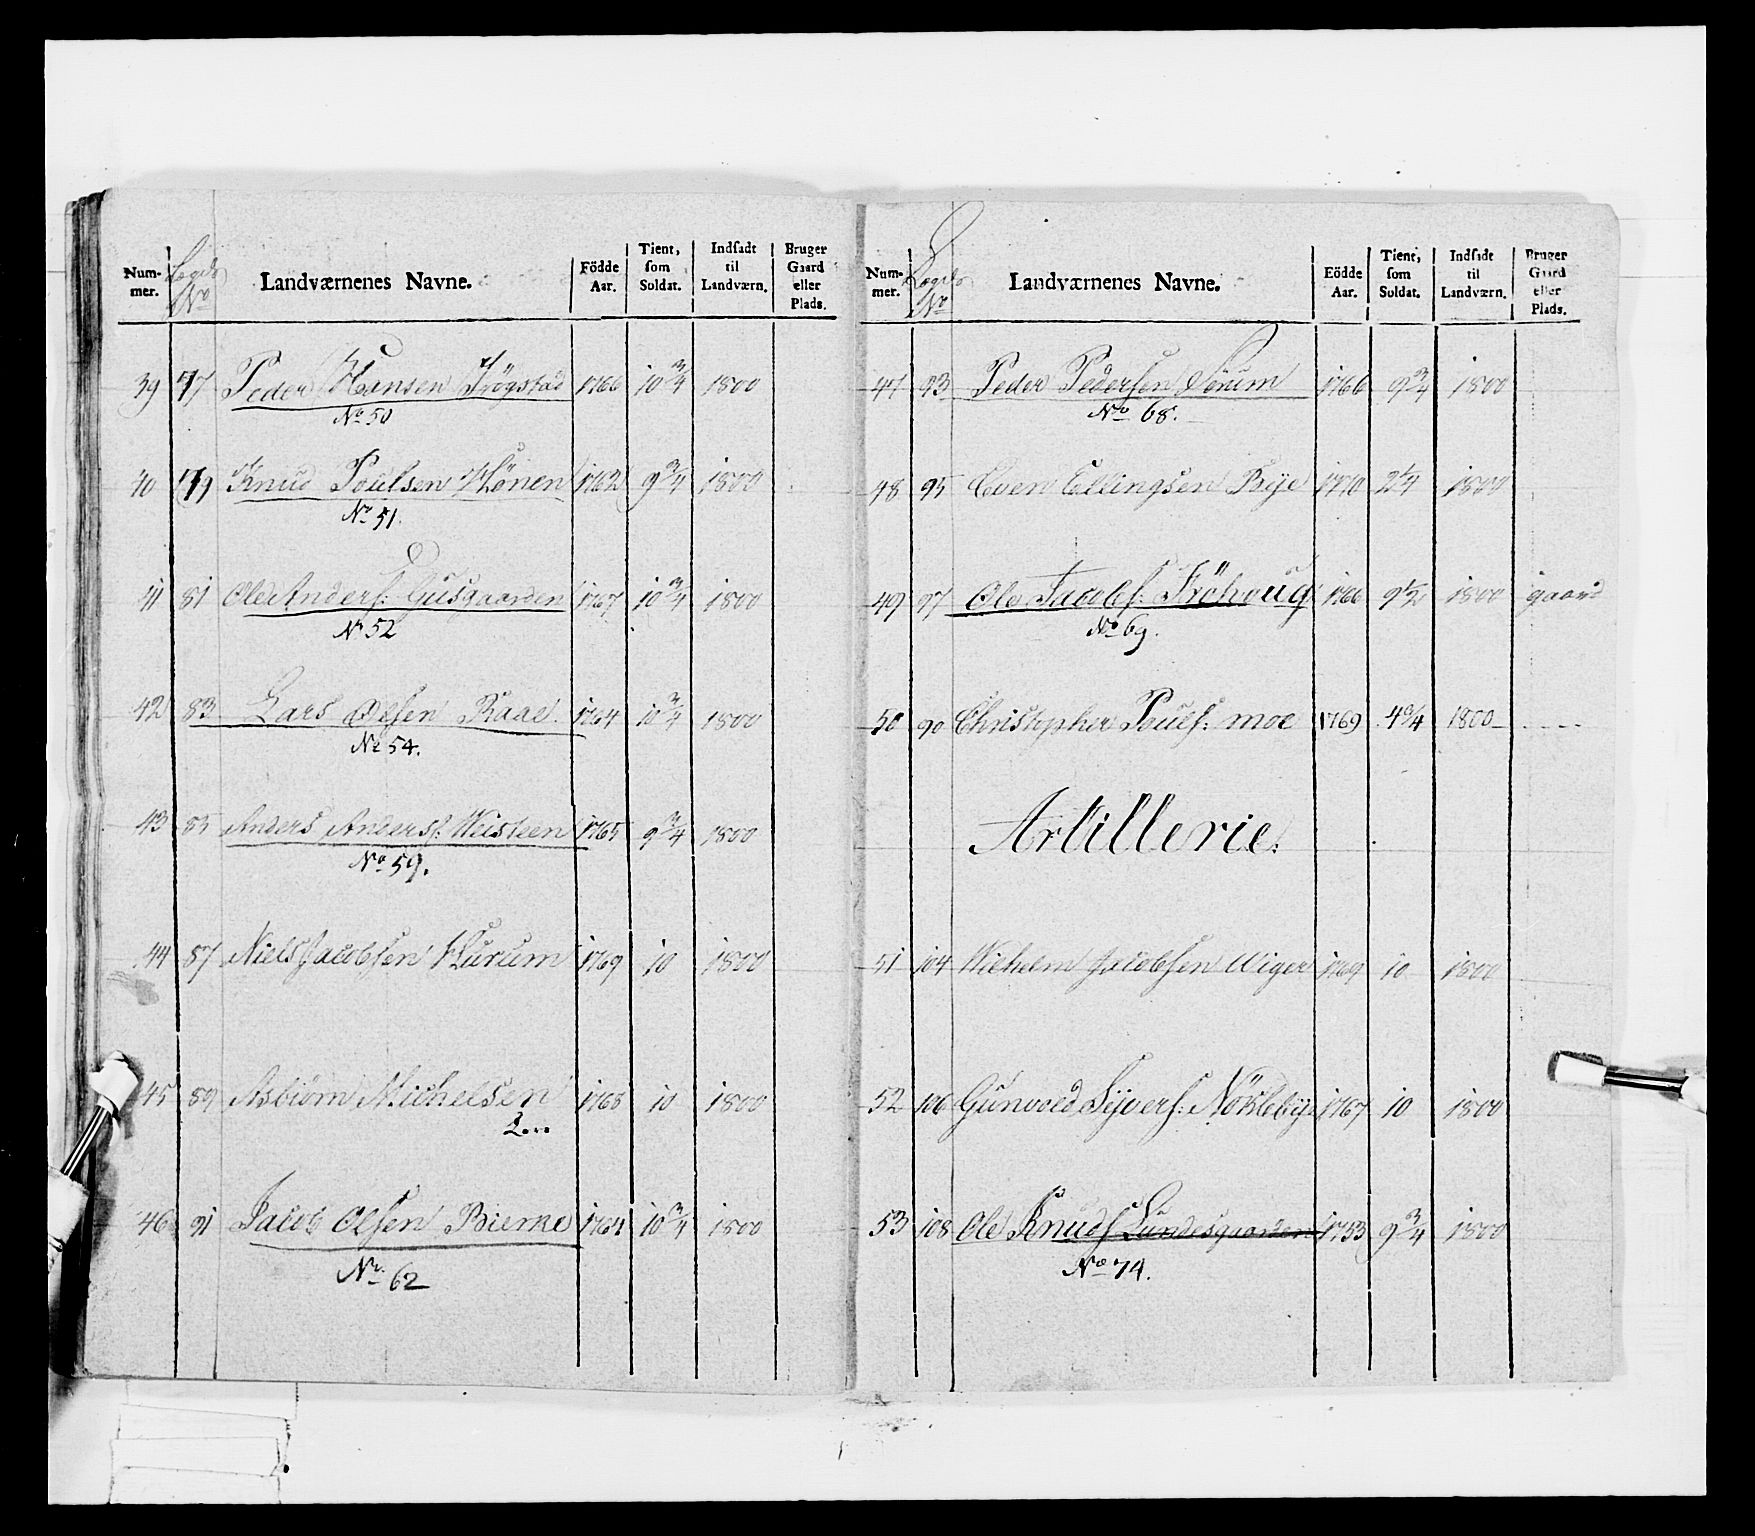 Num-mer. Lægds No Landværnenes Navne. Födde Aar. Tient, som Soldat. Indsadt til Landværn. Bruger Gaard eller Plads.
39 77 Peder Hansen Frögstad 1766 10 3/4 1800
No 50
40 79 Knud Poulsen Hönen 1762 9 3/4 1800
No 51.
41 81 Ole Anders: Gusgaarden 1767 10 3/4 1800
No 52
42 83 Lars Olsen Raae 1764 10 3/4 1800
No 54.
43 85 Anders Anders: Weisteen 1765 9 3/4 1800
No 59.
44 87 Niels Jacobsen Hurum 1769 10 1800
45 89 Asbiörn Michelsen 1768 10 1800
46 91 Jacob Olsen Bierke 1764 10 3/4 1800
No. 62
Num-mer. Lægds No Landværnenes Navne. Födde Aar. Tient, som Soldat. Indsadt til Landværn. Bruger Gaard eller Plads.
47 93 Peder Pedersen Sörum 1766 9 3/4 1800
No 68.
48 95 Even Ellingsen Bye 1770 2 1/4 1800
49 97 Ole Jacobs: Fröhoug 1766 9 1/2 1800 gaard
No 69.
50 90 Christopher Pouls: moe 1769 1800
Artillerie.
51 104 Wilhelm Jacobsen Wiger 1769 10 1800
52 106 Gunvold Syvers: Nökleby 1767 10 1800
53 108 Ole Knuds Lundesgaarden 1753 9 3/4 1800
No 74.